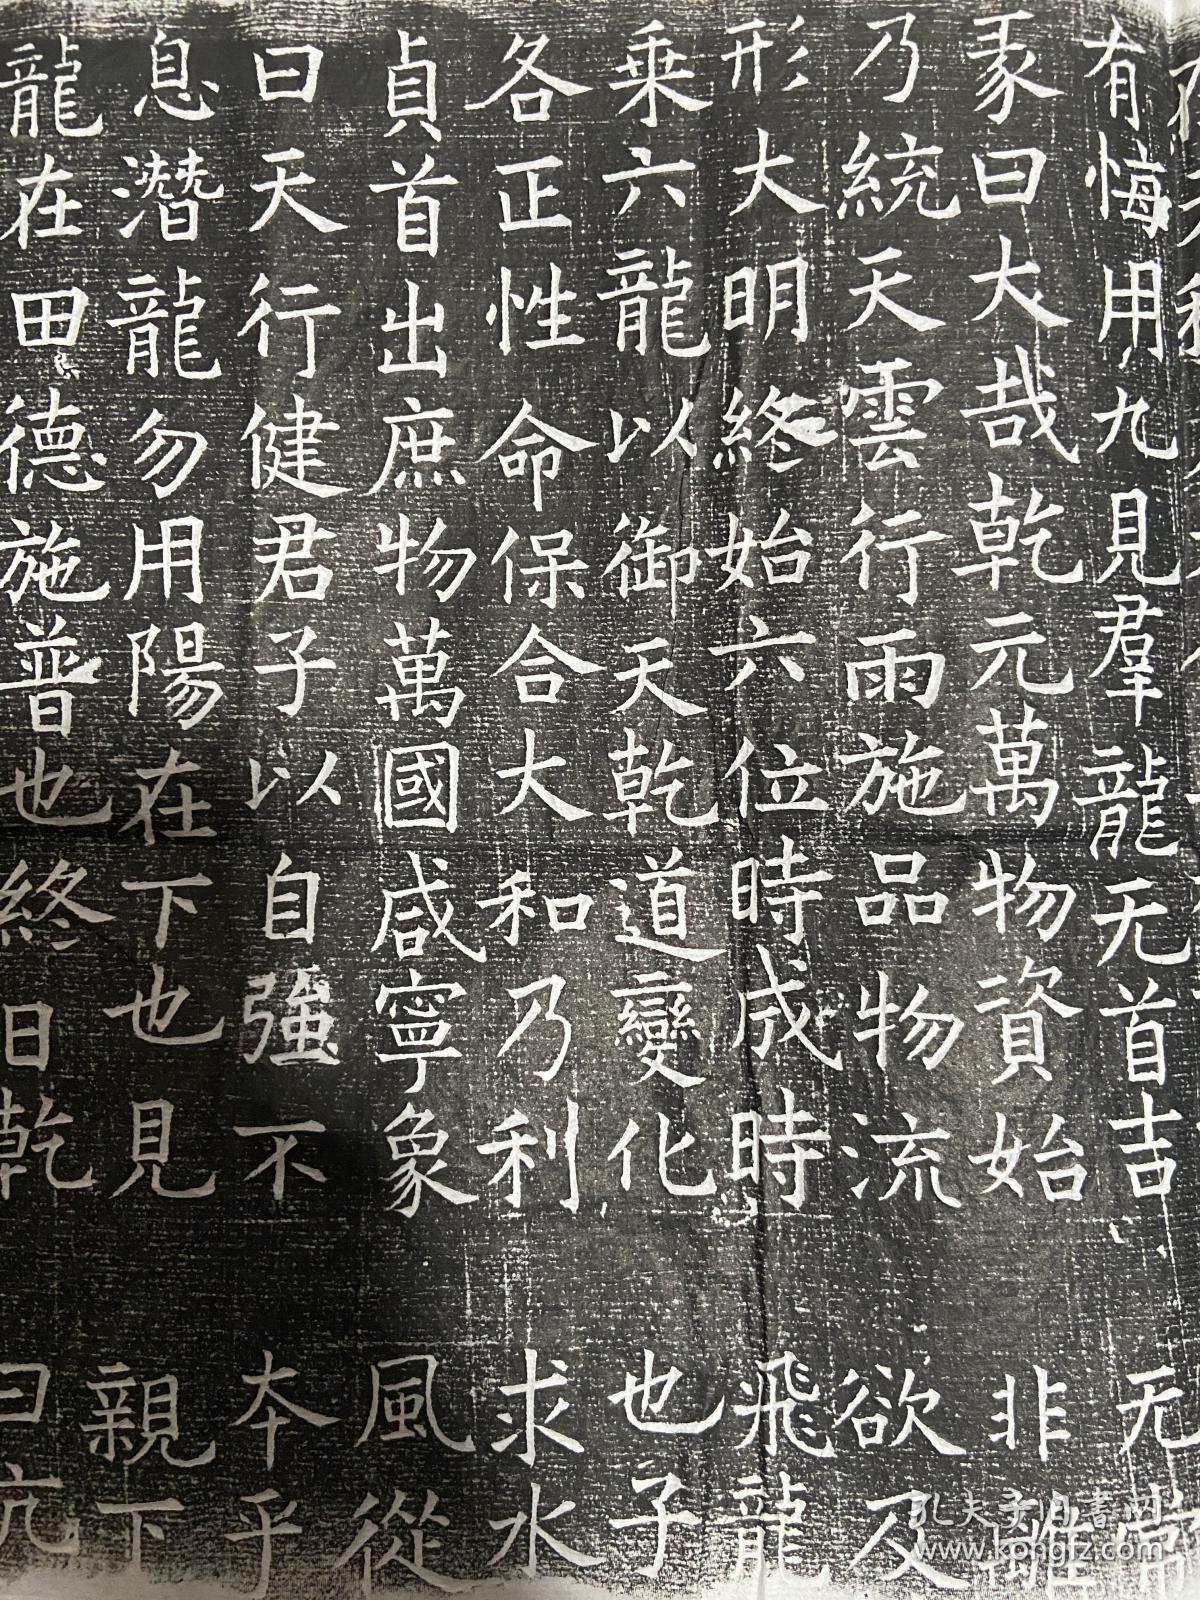 有悔用九見羣龍无首吉
彖曰大哉乾元萬物資始
乃統天雲行雨施品物流
形大明終始六位時成時
乗六龍以御天乾道變化
各正性命保合大和乃利
貞首出庶物萬國咸寧象
曰天行健君子以自強不
息潛龍勿用陽在下也見
龍在田德施普也終日乾
无常
非離
欲及
飛龍
也子
求水
風從
本乎
親下
曰亢
孔夫子旧书网
www.kongfz.com